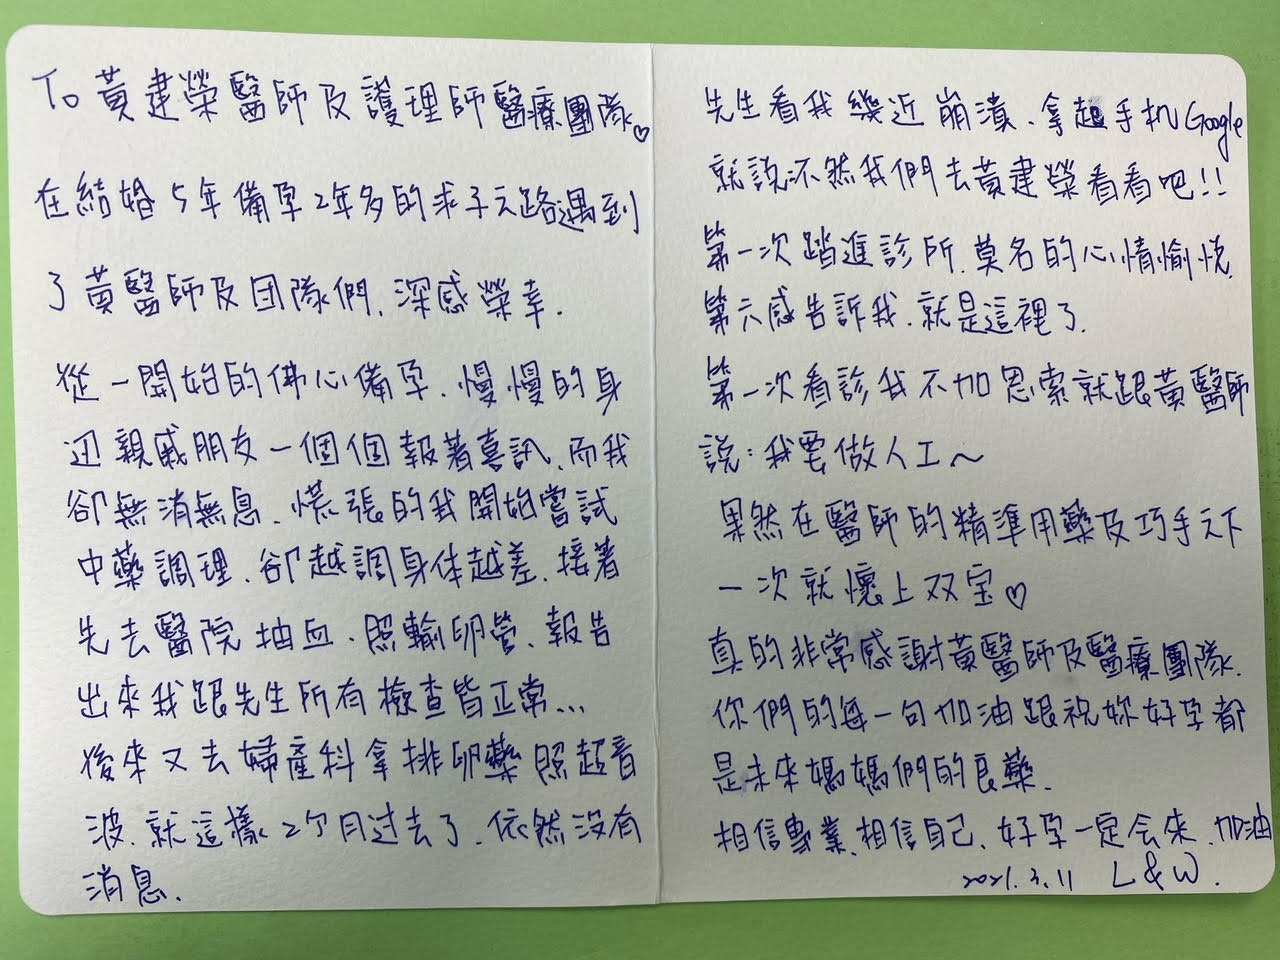 To 黃建榮醫師及護理師醫療團隊♡
在結婚5年備孕2年多的求子之路遇到
了黃醫師及团隊們、深感榮幸.
從一開始的佛心備孕、慢慢的身
边親戚朋友一個個報著喜訊、而我
卻無消無息、慌張的我開始嘗試
中藥調理、卻越調身体越差、接著
先去醫院抽血、照輸卵管、報告
出來我跟先生所有檢查皆正常...
後來又去婦產科拿排卵藥照超音
波、就這樣2个月过去了、依然沒有
消息、
先生看我幾近崩潰、拿起手机Google
就說不然我們去黃建榮看看吧!!
第一次踏進診所、莫名的心情愉悅
第六感告訴我、就是這裡了.
第一次看診我不加思索就跟黃醫師
說:我要做人工～
果然在醫師的精準用藥及巧手之下
一次就懷上双宝♡
真的非常感謝黃醫師及醫療團隊.
你們的每一句加油跟祝妳好孕都
是未來媽媽們的良藥.
相信專業、相信自己、好孕一定会來、加油
2021.3.11 L&W.